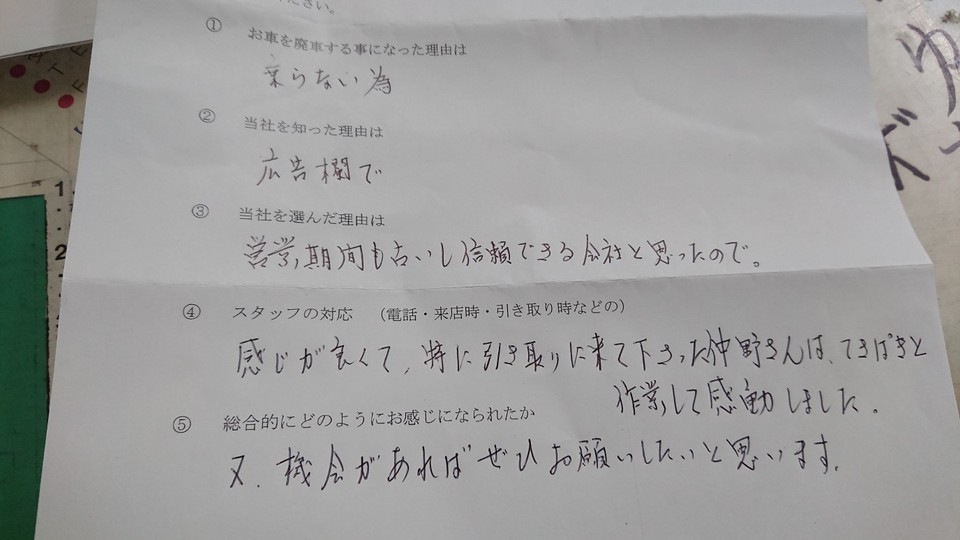 ださい。
① お車を廃車する事になった理由は
乗らない為
② 当社を知った理由は
広告欄で
③ 当社を選んだ理由は
営業期間も古いし信頼できる会社と思ったので。
④ スタッフの対応 （電話・来店時・引き取り時などの）
感じが良くて、特に引き取りに来て下さった仲野さんは、てきぱきと
作業して感動しました。
⑤ 総合的にどのようにお感じになられたか
又、機会があればぜひお願いしたいと思います。
1
2